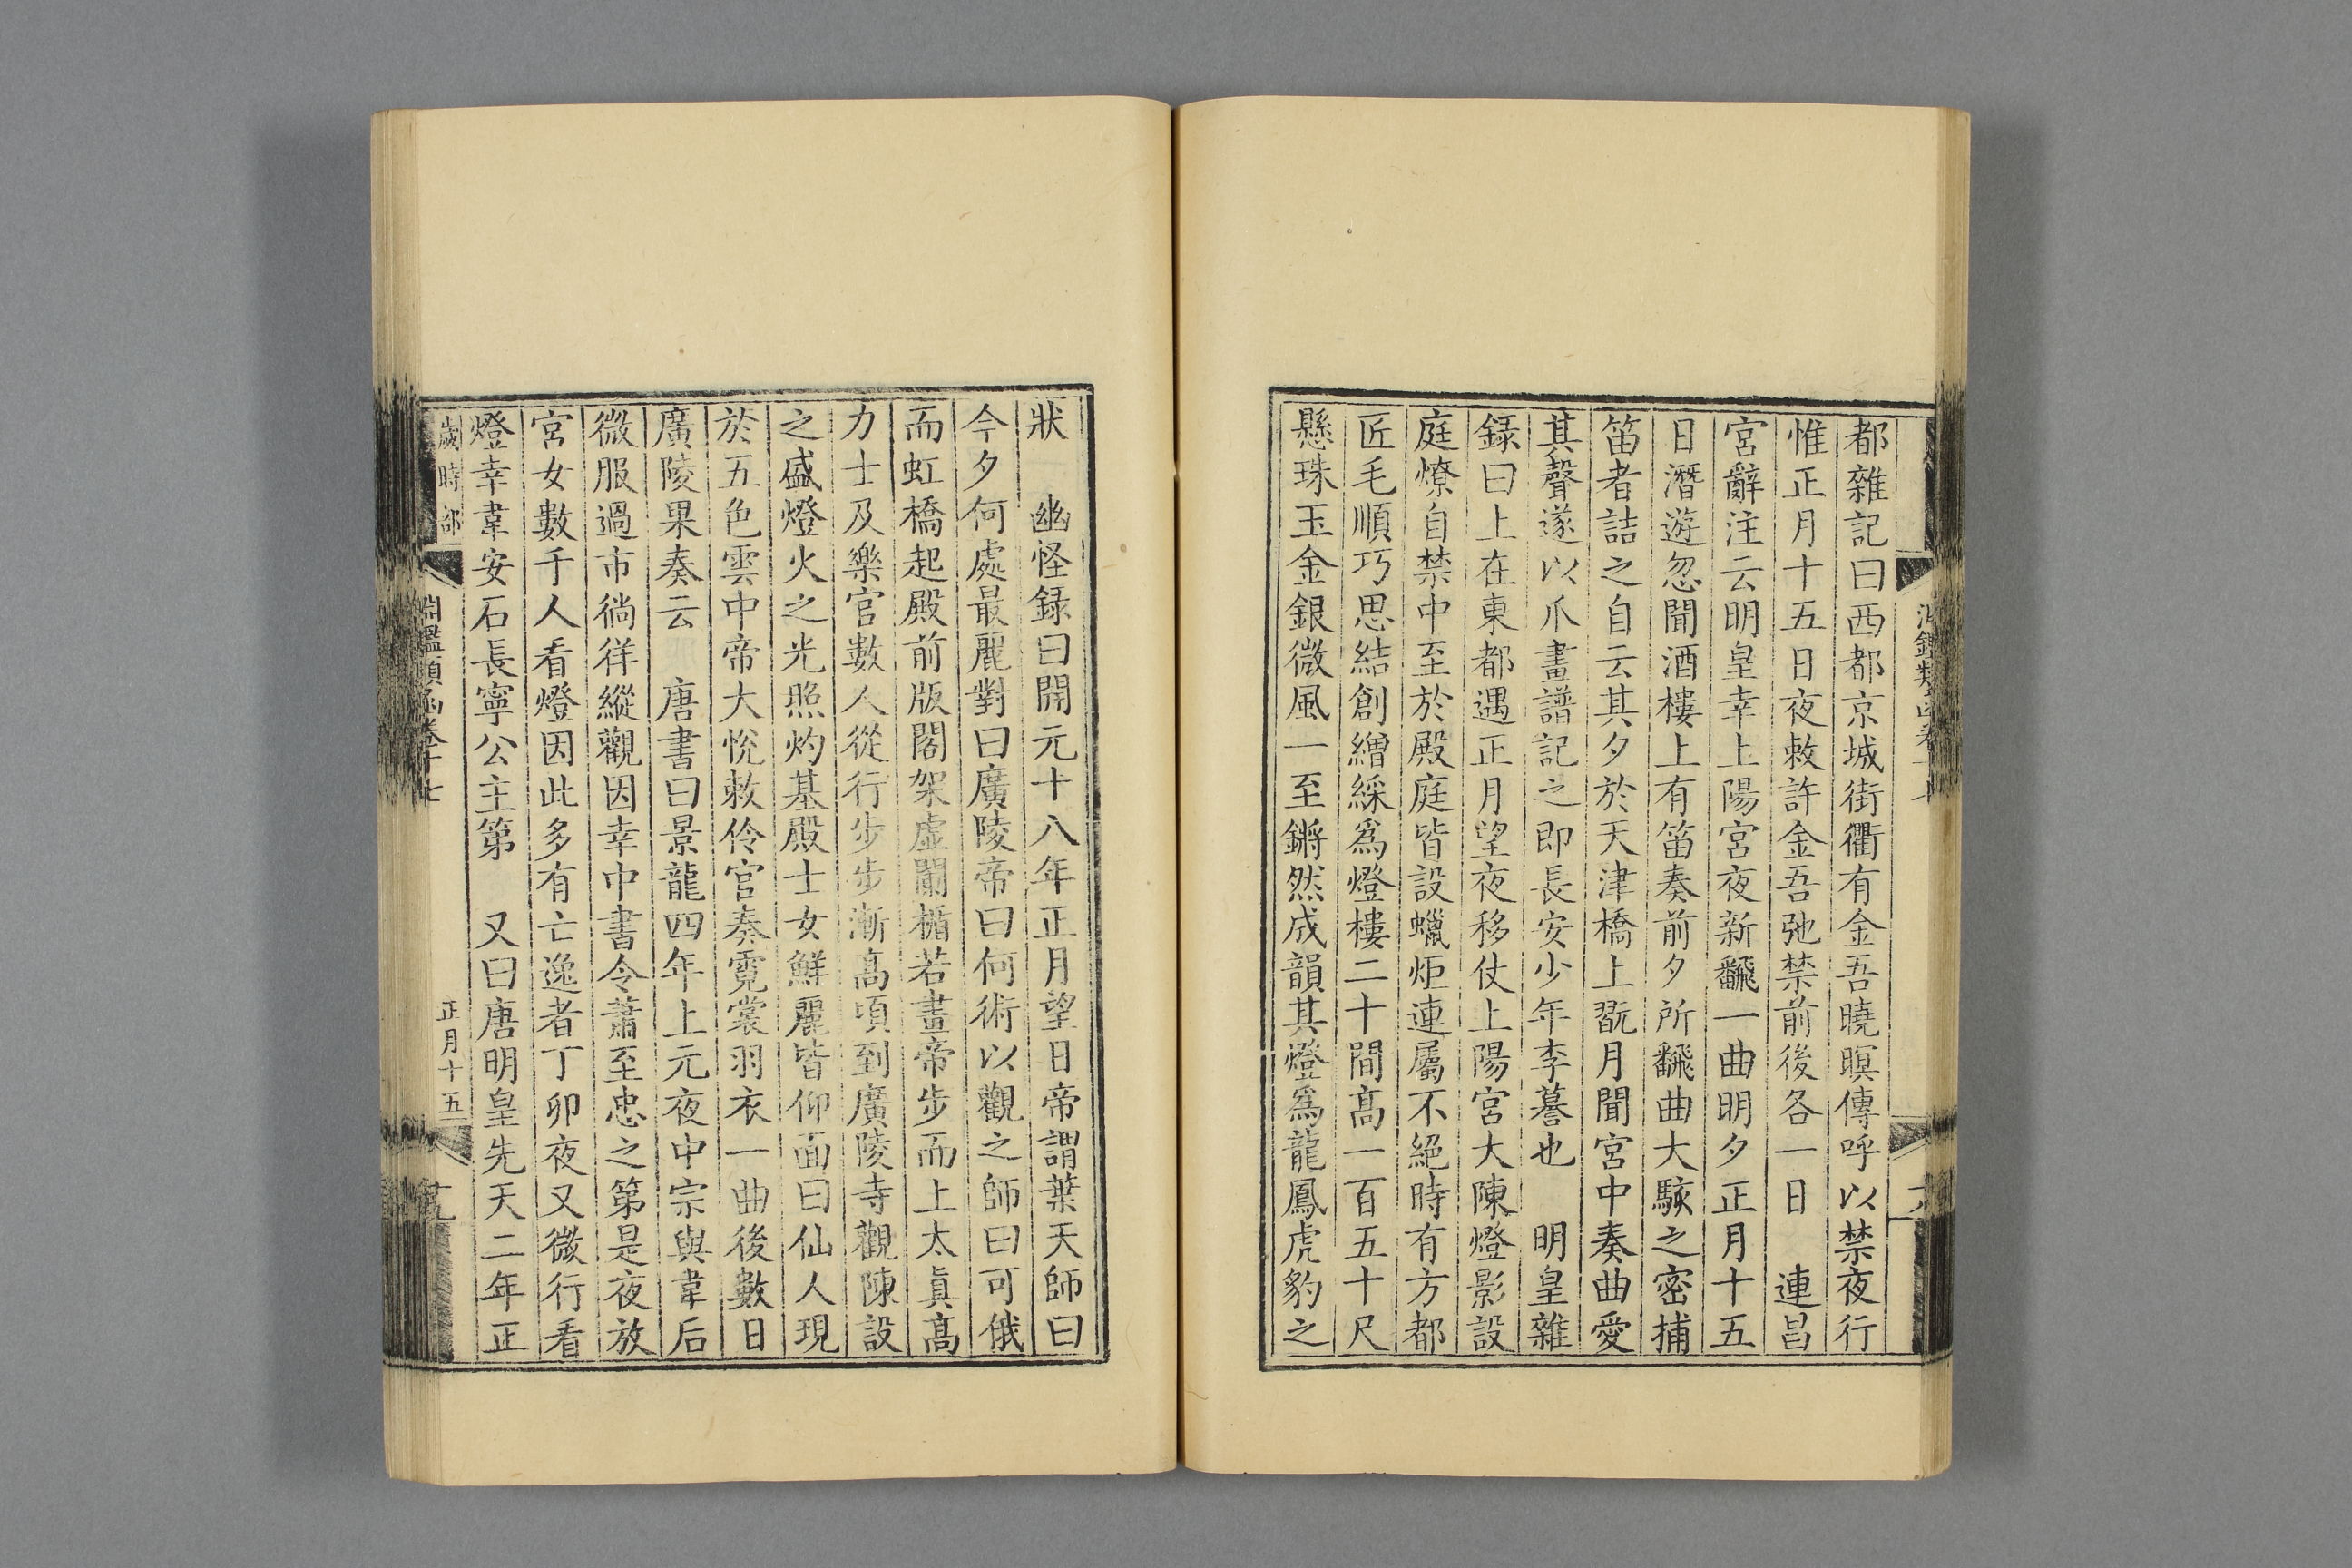 都雜記曰西都京城街衢有金吾曉暝傳呼以禁夜行
惟正月十五日夜敕許金吾弛禁前後各一日　連昌
宮辭注云明皇幸上陽宮夜新飜一曲明夕正月十五
日潛遊忽聞酒樓上有笛奏前夕所飜曲大駭之密捕
笛者詰之自云其夕於天津橋上翫月聞宮中奏曲愛
其聲遂以爪畫譜記之即長安少年李謩也　明皇雜
録曰上在東都遇正月望夜移仗上陽宮大陳燈影設
庭燎自禁中至於殿庭皆設蠟炬連屬不絕時有方都
匠毛順巧思結創繒綵爲燈樓二十間高一百五十尺
懸珠玉金銀微風一至鏘然成韻其燈爲龍鳳虎豹之
狀　幽怪録曰開元十八年正月望日帝謂葉天師曰
今夕何處最麗對曰廣陵帝曰何術以觀之師曰可俄
而虹橋起殿前版閣架虛闌楯若畫帝步而上太眞高
力士及樂官數人從行步步漸高頃到廣陵寺觀陳設
之盛燈火之光照灼基殿士女鮮麗皆仰面曰仙人現
於五色雲中帝大悅敕伶官奏霓裳羽衣一曲後數日
廣陵果奏云　唐書曰景龍四年上元夜中宗與韋后
微服過市徜徉縱觀因幸中書令蕭至忠之第是夜放
宮女數千人看燈因此多有亡逸者丁卯夜又微行看
燈幸韋安石長寧公主第　又曰唐明皇先天二年正
歲時部
淵鑑類函卷十七
正月十五